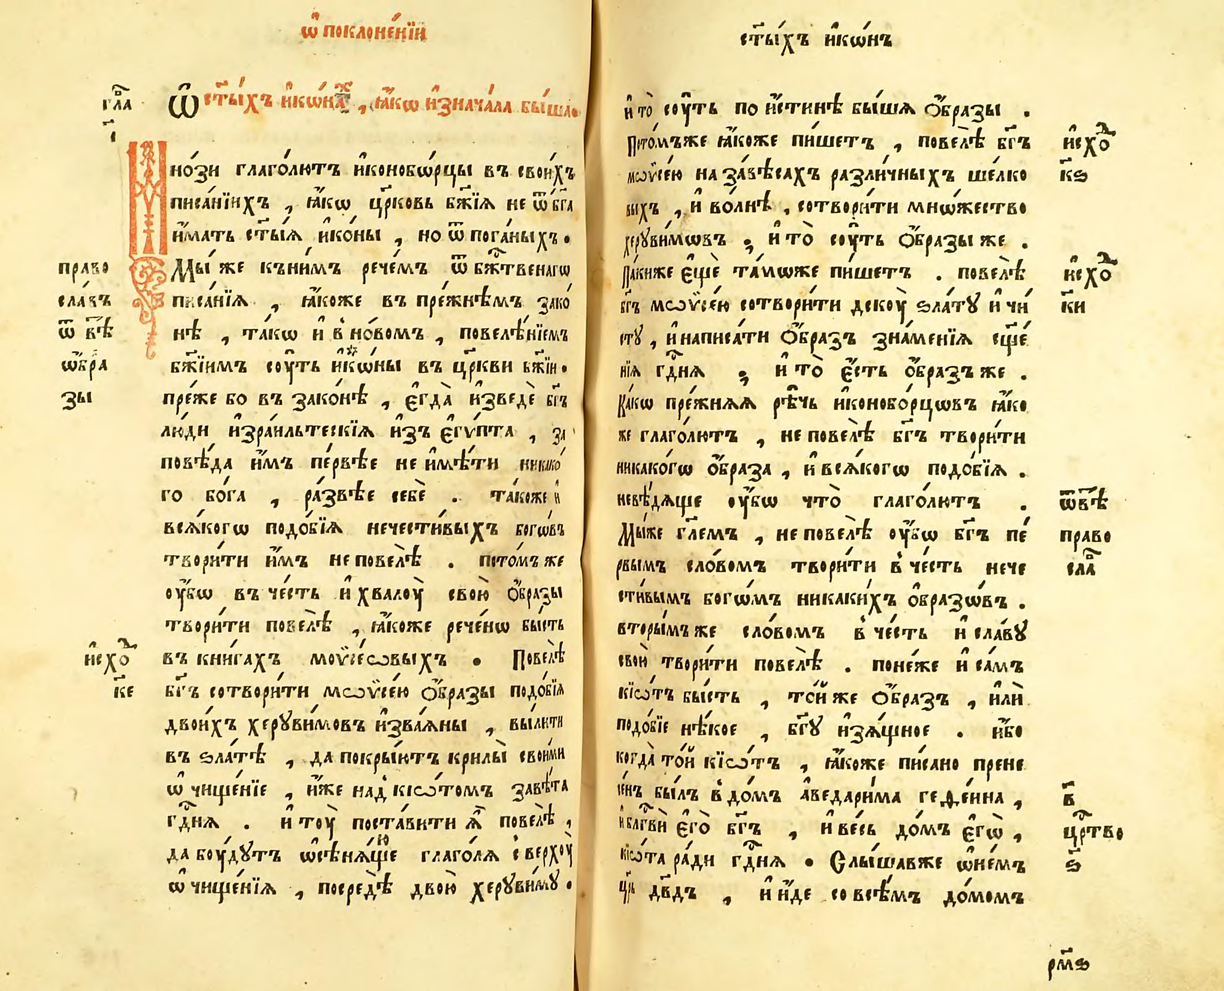 ѡ҆ поклоне́нїи
гла҃
а҃
Ѡ҆ ст҃ы́хъ и҆кѡ́нахъ , ꙗ҆́кѡ и҆знача́ла бы́ша .
Мно́зи глаго́лютъ и҆конобо́рцы въ свои́хъ
писа́нїихъ , ꙗ҆́кѡ цр҃ковь бж҃їѧ не ѿ бг҃а
и҆́мать ст҃ы́ѧ и҆ко́ны , но ѿ пога́ныхъ .
Мы́ же къни́мъ рече́мъ ѿ бж҃твенагѡ
писа́нїѧ , ꙗ҆́коже въ пре́жнѣмъ зако́
нѣ , та́кѡ и҆ в но́вомъ , повелѣ́нїемъ
бж҃їимъ соу́ть и҆кѡ́ны въ цр҃кви бж҃їи .
пре́же бо въ зако́нѣ , є҆гда̀ и҆зведѐ бг҃ъ
лю́ди и҆зра́ильтескїѧ и҆зъ є҆гѵ́пта , за
повѣ́да и҆̀мъ пе́рвѣе не и҆мѣ́ти никако́
го бо́га , ра́звѣе себѐ . та́коже и҆
всѧ́когѡ подо́бїѧ нечести́выхъ бого́въ
твори́ти и҆̀мъ не повелѣ̀ . пото́мъ же
оу҆́бѡ въ че́сть и҆ хвалоу̀ свою̀ ѻ҆́бразы
твори́ти повелѣ̀ , ꙗ҆́коже рече́нѡ бы́сть
въ кни́гахъ моѵ҆се́ѡвыхъ . Повелѣ̀
бг҃ъ сотвори́ти мѡѵ҆се́ю ѻ҆́бразы подо́бїѧ
двои́хъ херꙋви́мовъ и҆зва́ѧны , вы́лити
въ ѕла́тѣ , да покры́ютъ крилы̀ свои́ми
ѡ҆чище́нїе , и҆́же над̾ кїѡ́томъ завѣ́та
гд҃нѧ . и҆ тоу̀ поста́вити ѧ҆̀ повелѣ̀ ,
да боу́дутъ ѡ҆сѣнѧ́юще глаго́лѧ с верхоу̀
ѡ҆чище́нїѧ , посредѣ̀ двою̀ херꙋви́мꙋ .
право
сла́въ
ѿ вѣ́
ѡ҆́бра
зы
и҆схо
к҃е
ст҃ы́хъ и҆кѡ́нъ
и҆ то̀ соу́ть по и҆́стинѣ бы́шѧ ѻ҆́бразы .
Пото́мъже ꙗ҆́коже пи́шетъ , повелѣ̀ бг҃ъ
мѡѵ҆се́ю на завѣ́сахъ разли́чныхъ шелко
выхъ , и҆ во́лнѣ , сотвори́ти мнѡ́жество
херꙋви́мѡвъ , и҆ то̀ соу́ть ѻ҆́бразы же .
Па́киже є҆щѐ та́мѡже пи́шетъ . повелѣ̀
бг҃ъ мѡѵ҆се́ю сотвори́ти дскоу̀ ѕла́тꙋ и҆ чи́
стꙋ , и҆ написа́ти ѻ҆́бразъ зна́менїѧ сще́
нїѧ гд҃нѧ , и҆ то̀ є҆́сть ѻ҆́бразъ же .
Ка́кѡ пре́жнѧѧ рѣ́чь и҆коноборцо́въ ꙗ҆́ко
же глаго́лютъ , не повелѣ̀ бг҃ъ твори́ти
никако́гѡ ѻ҆́браза , и҆ всѧ́когѡ подо́бїѧ .
невѣ́дѧще оу҆́бѡ что̀ глаго́лютъ .
Мы́же гл҃емъ , не повелѣ̀ оу҆́бѡ бг҃ъ пе́
рвымъ сло́вомъ твори́ти в че́сть нече
сти́вымъ бого́мъ никаки́хъ ѻ҆́бразѡвъ .
вторы́мъ же сло́вомъ в че́сть и҆ сла́вꙋ
свою̀ твори́ти повелѣ̀ . поне́же и҆ са́мъ
кїѡ́тъ бы́сть , то́й же ѻ҆́бразъ , и҆лѝ
подо́бїе нѣ́кое , бг҃ꙋ и҆зѧ́щное . и҆́бо
когда̀ то́й кїѡ́тъ , ꙗ҆́коже пи́сано прене
се́нъ бы́лъ в до́мъ аведари́ма геѳе́ина ,
и҆ блгв҃и є҆го̀ бг҃ъ , и҆ ве́сь до́мъ є҆гѡ̀ ,
кїѡ́та ра́ди гд҃нѧ . Слы́шавже ѡ҆не́мъ
цр҃ь дв҃дъ , и҆ и҆́де со всѣ́мъ до́момъ
и҆схо
к҃ѕ
и҆схо
к҃и
ѿвѣ̀
право
сла
в҃
цр҃тво
ѕ҃
рм҃ѕ